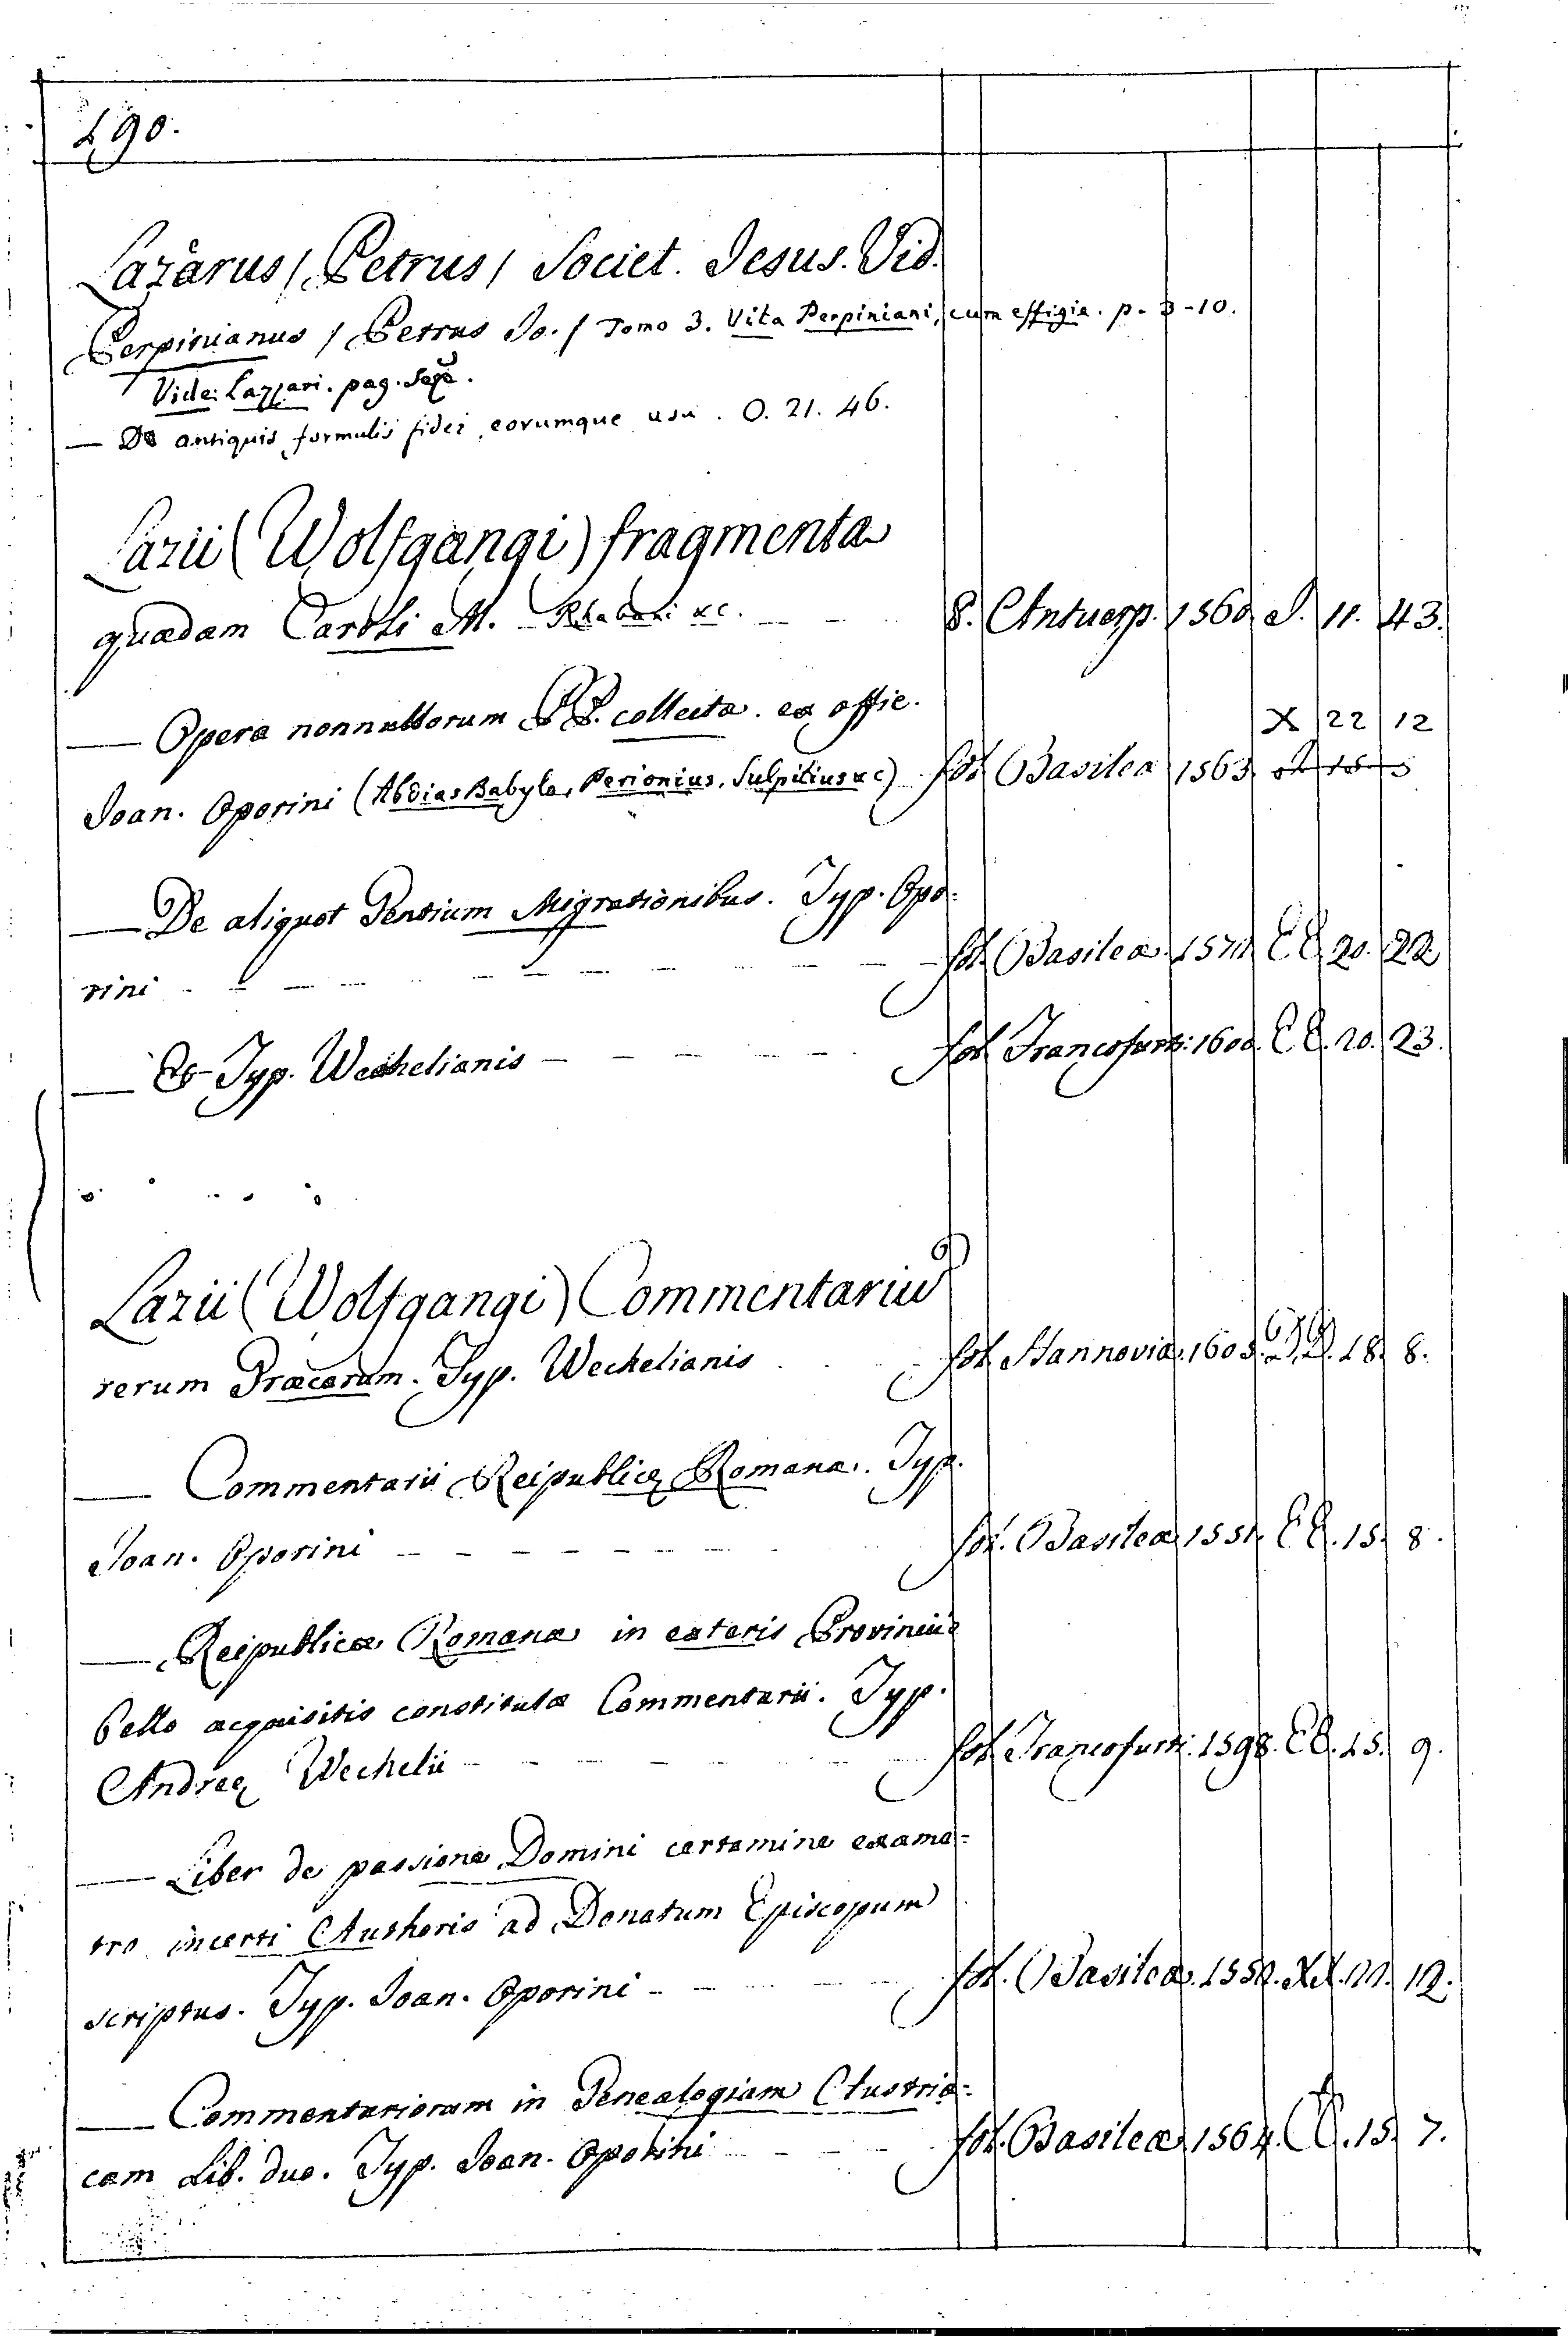 190.
Lazarus / Petrus / Societ. Jesus. Vid.
Perpinianus / Petrus Jo. / Tomo 3. Vita Perpiniani, cum effigie. p. 3-10.
Vide: Lazzari. pag. seqe.
— De antiquis formulis fidei eorumque usu. O. 21. 46.
Lazii (Wolfgangi) fragmenta
quædam Caroli M. Rhabani &c. 8. Antuerp. 1560 J. 11. 43.
— Opera nonnullorum PP. collecta. ex offic. X 22 12
Joan. Oporini (Abdias Babylo, Perionius, Sulpitius &c) fol. Basileæ 1563
— De aliquot Gentium Migrationibus. Typ. Opo=
rini fol. Basileæ. 1572 CC. 20. 22
— Ex Typ. Wechelianis fol. Francofurti. 1600. CC. 20. 23.
Lazii (Wolfgangi) Commentarius
rerum Græcarum. Typ. Wechelianis fol. Hannoviæ. 1605. 18. 8.
— Commentarii Reipublicę Romanæ. Typ.
Joan. Oporini fol. Basileæ 1551. CC. 15. 8.
— Reipublicæ Romanæ in exteris Provinciis
bello acquisitis constitutæ Commentarii. Typ.
Andreę Wechelii fol. Francofurti. 1598. CC. 15. 9.
— Liber de passione Domini certamine exame=
tro incerti Authoris ad Donatum Episcopum
scriptus. Typ. Joan. Oporini fol. Basileæ. 1552. 12.
— Commentariorum in Genealogiam Austria=
cam Lib. duo. Typ. Joan. Oporini fol. Basileæ 1564. CC. 15. 7.